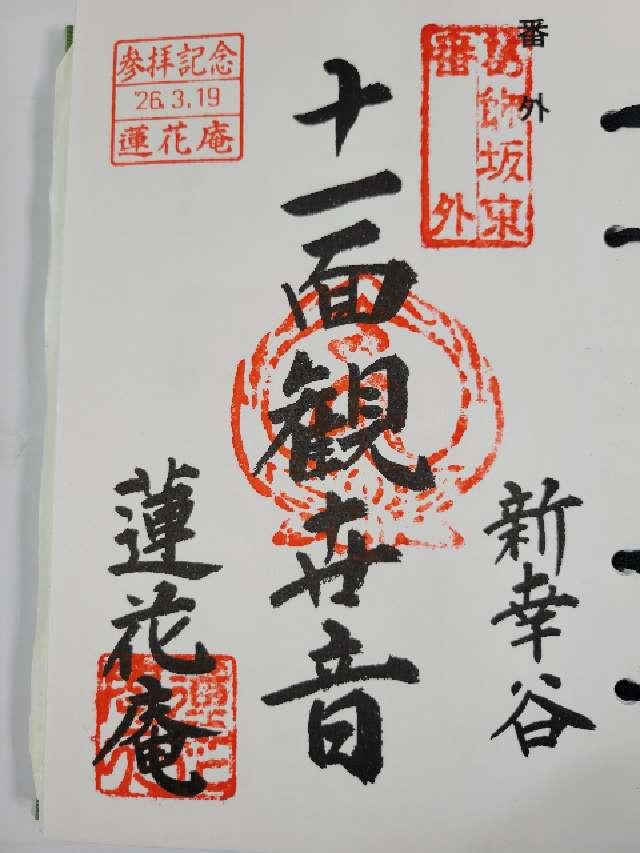 番外
葛飾坂東
番外
新幸谷
十一面観世音
参拝記念
26.3.19
蓮花庵
蓮花庵